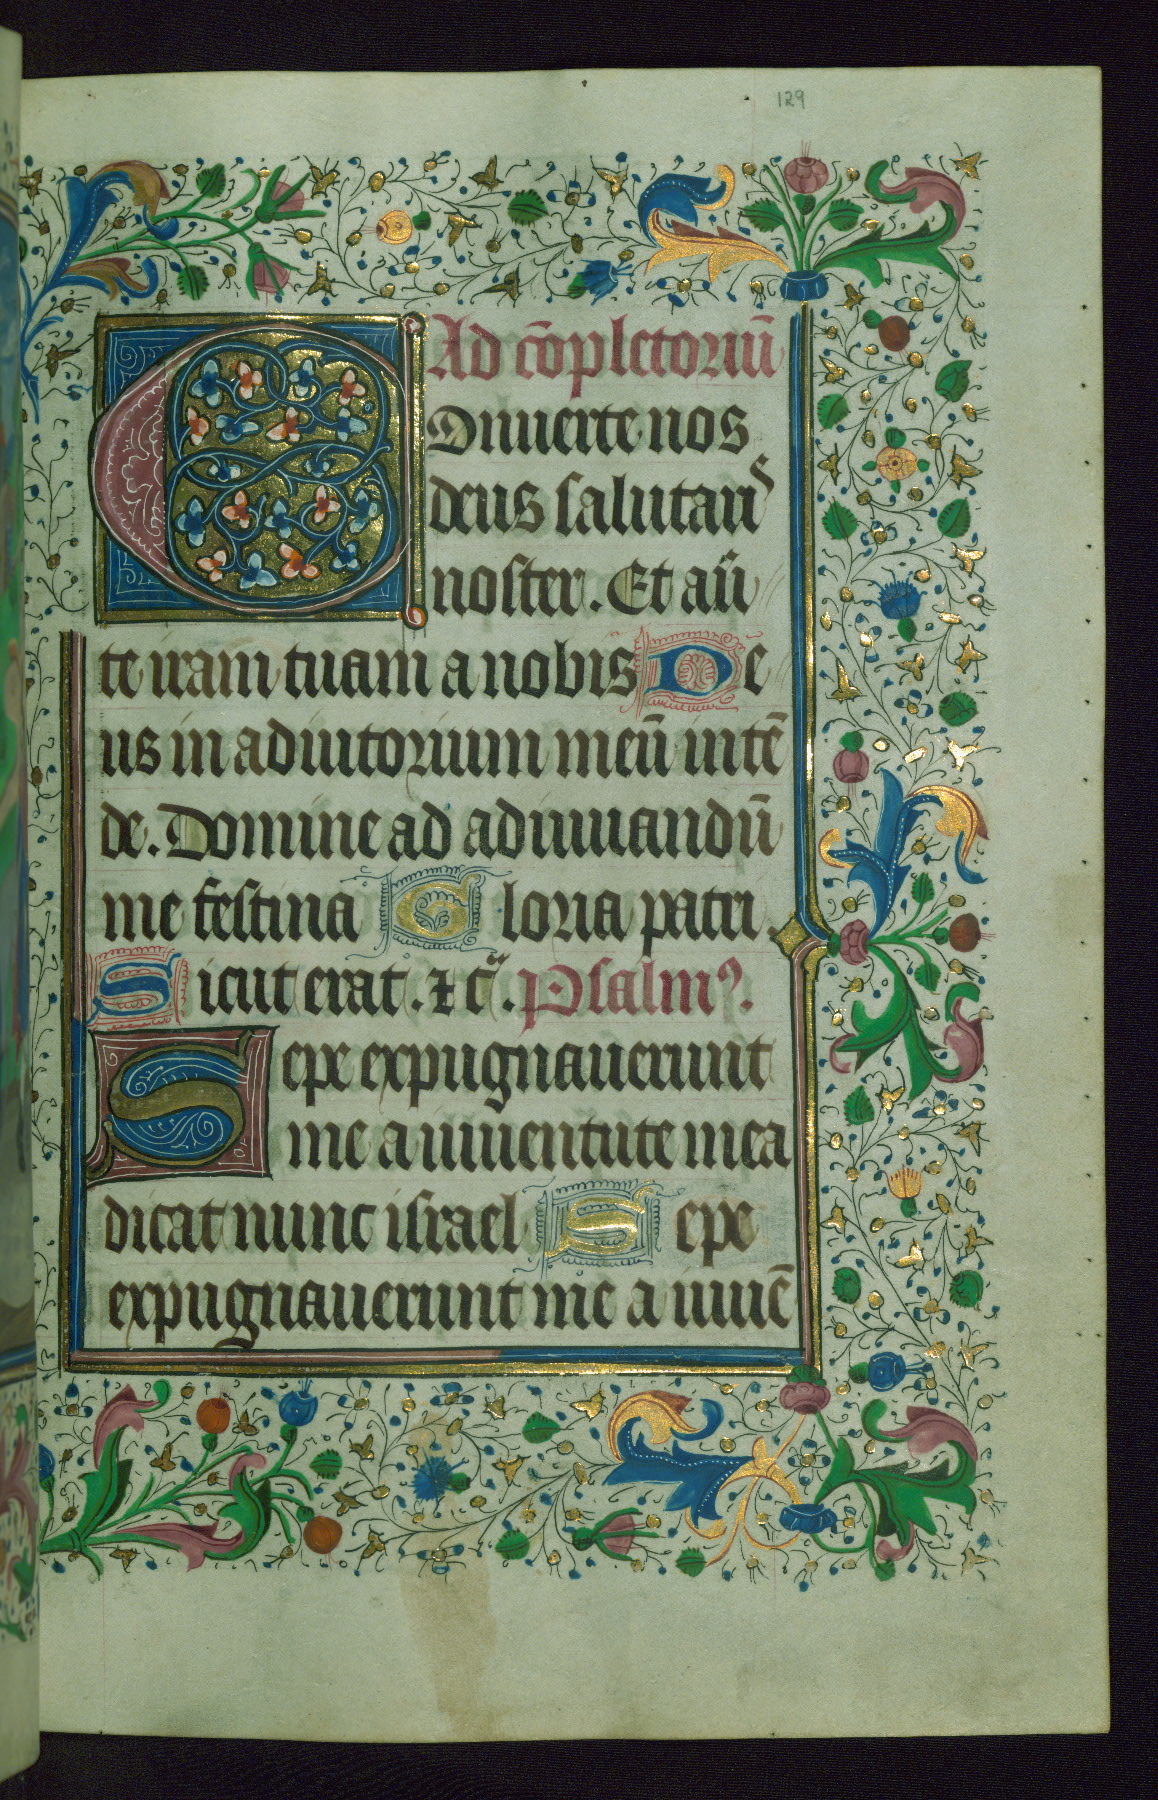 129
Ad cōpletoriū
Conuerte nos
deus salutaris
noster. Et auer
te iram tuam a nobis De
us in adiutorium meū intē
de. Domine ad adiuuandū
me festina Gloria patri.
Sicut erat. ⁊ cͣ. Psalmꝰ.
Sepe expugnauerunt
me a iuuentute mea
dicat nunc israel Sepe
expugnauerunt me a iuuē